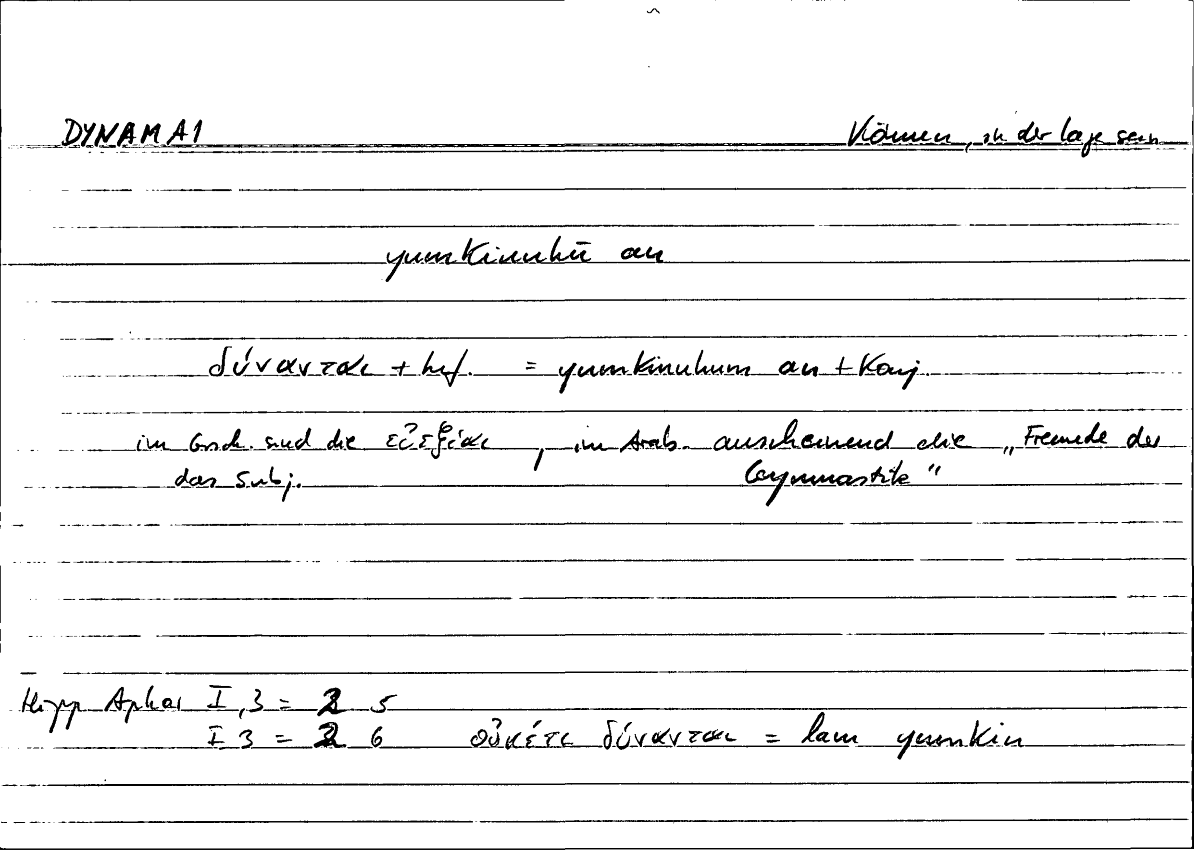 DYNAMAI Können, in der Lage sein
yumkinuhū an
δύνανται + Inf. = yumkinuhum an + Konj.
im Griech. sind die εὐεξίαι, im Arab. anscheinend die „Freunde der
das Subj. Gymnastik"
Hipp Aphor I,3 = 2 5
I 3 = 2 6 οὐκέτι δύνανται = lam yumkin